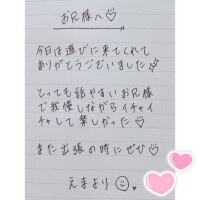 お兄様へ♡
今日は遊びに来てくれて
ありがとうございました
とっても話やすいお兄様
で我慢しながらイチャイ
チャして楽しかった♡
また出張の時にぜひ♡
えまより